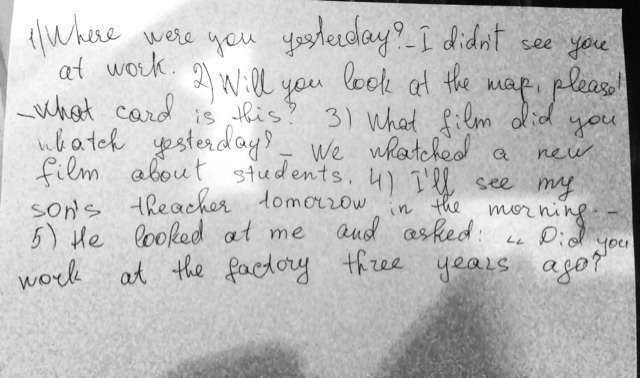 1) Where were you yesterday? - I didn't see you
at work. 2) Will you look at the map, please!
- What card is this? 3) What film did you
whatch yesterday? - We whatched a new
film about students. 4) I'll see my
son's theacher tomorrow in the morning. -
5) He looked at me and asked: „ Did you
work at the factory three years ago?